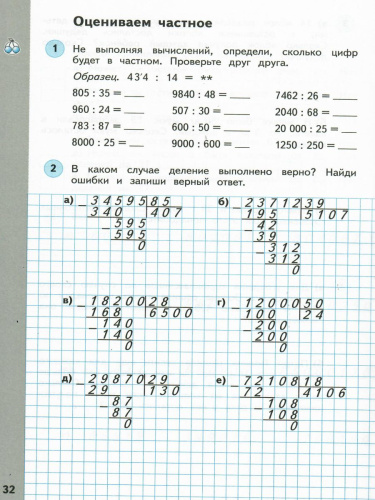 Оцениваем частное
1 Не выполняя вычислений, определи, сколько цифр
будет в частном. Проверьте друг друга.
Образец. 43'4 : 14 = **
805 : 35 = ___ 9840 : 48 = ___ 7462 : 26 = ___
960 : 24 = ___ 507 : 30 = ___ 2040 : 68 = ___
783 : 87 = ___ 600 : 50 = ___ 20 000 : 25 = ___
8000 : 25 = ___ 9000 : 600 = ___ 1250 : 250 = ___
2 В каком случае деление выполнено верно? Найди
ошибки и запиши верный ответ.
а) − 34595 | 85
340 | 407
− 595
595
0
б) − 23712 | 39
195 | 5107
− 42
39
− 312
312
0
в) − 18200 | 28
168 | 6500
− 140
140
0
г) − 12000 | 50
100 | 24
− 200
200
0
д) − 29870 | 29
29 | 130
− 87
87
0
е) − 72108 | 18
72 | 4106
− 108
108
0
32